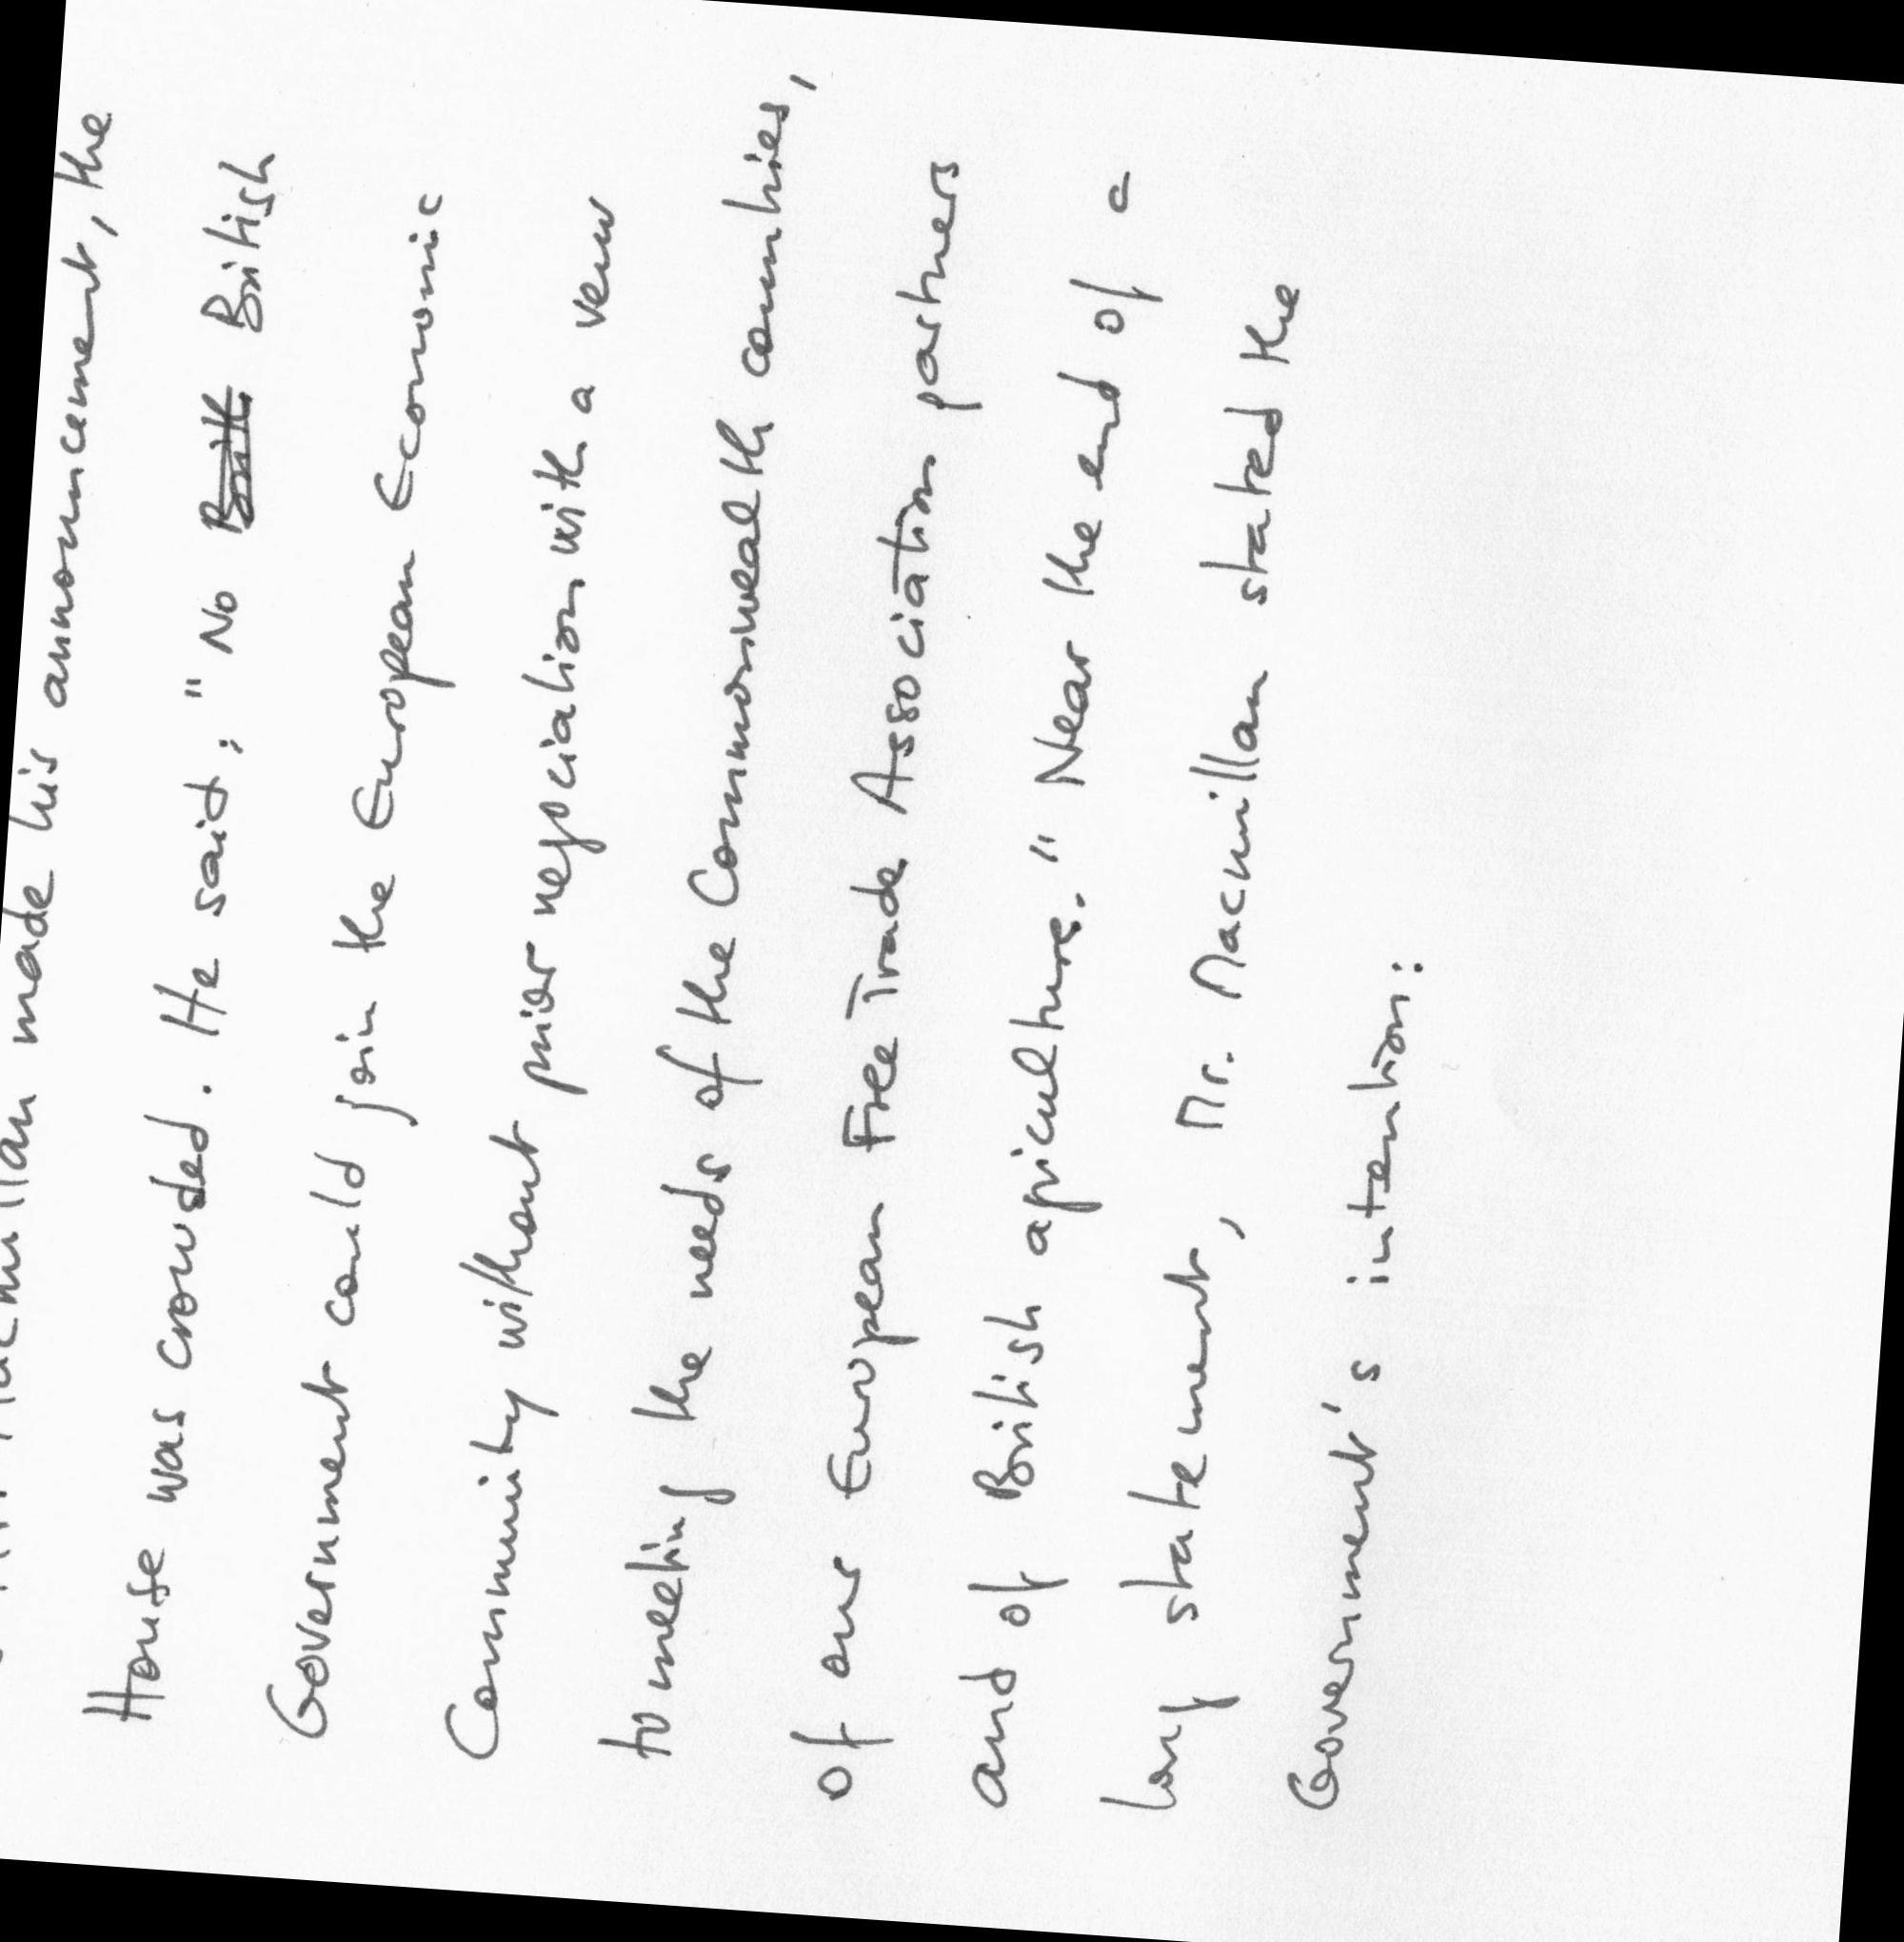 Macmillan made his announcement, the
House was crowded. He said: "No British
Government could join the European Economic
Community without prior negociation with a veuw
to meeting the needs of the Commonwealth countries,
of our European Free Trade Association partners
and of British agriculture." Near the end of a
long statement, Mr. Macmillan stated the
Government's intention: